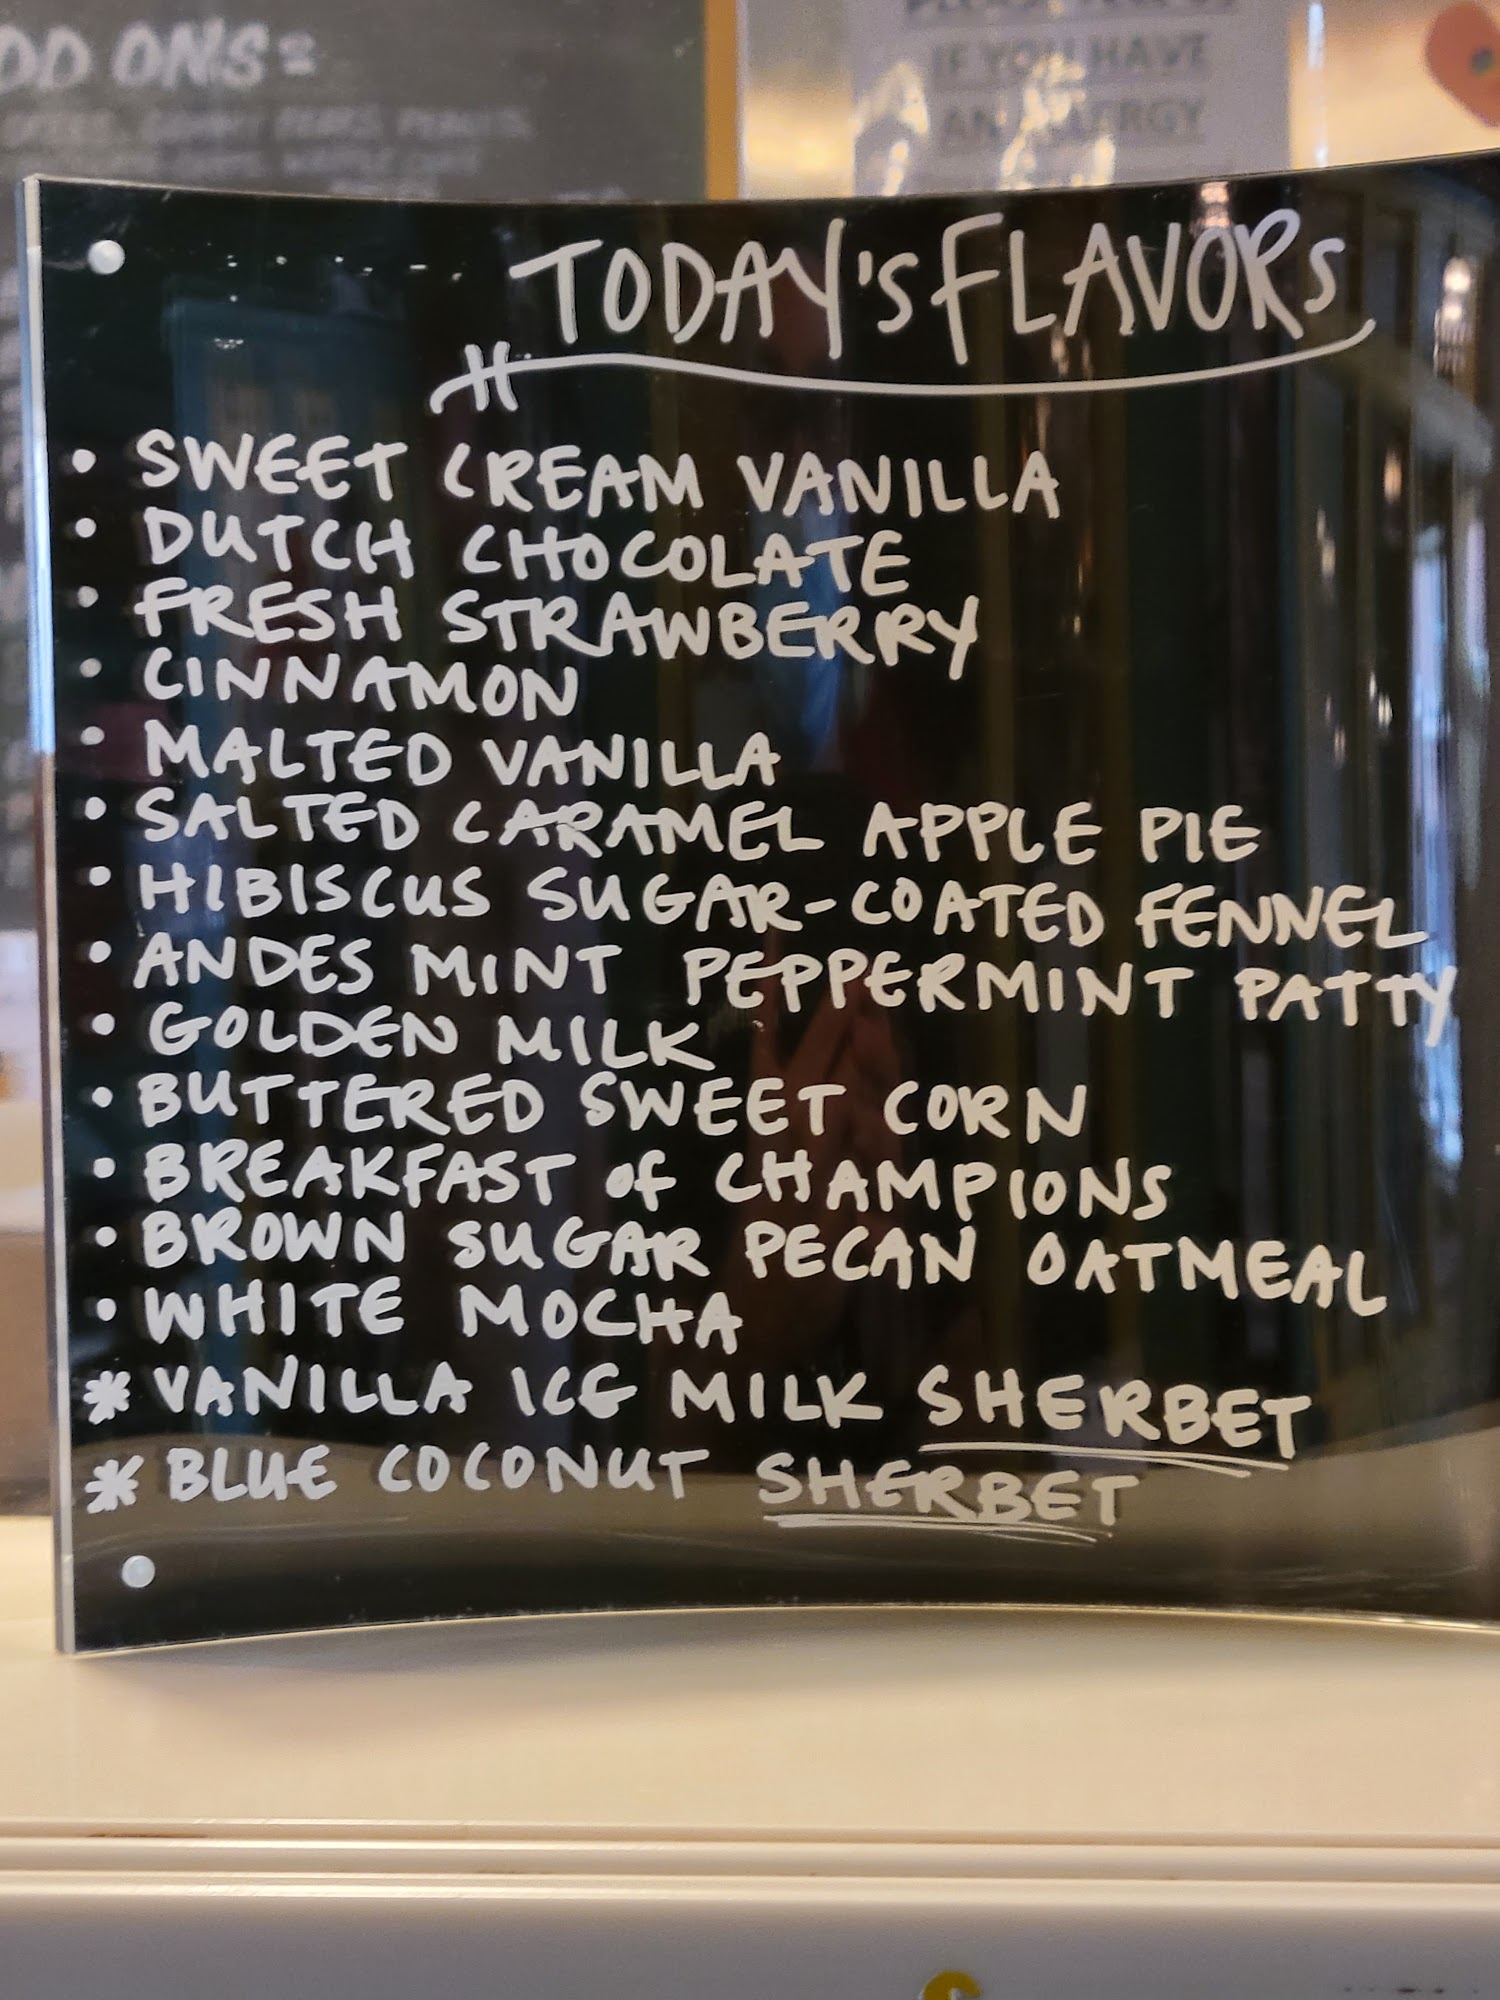 ADD ONS:
IF YOU HAVE
AN ALLERGY
TODAY'S FLAVORS
• SWEET CREAM VANILLA
• DUTCH CHOCOLATE
• FRESH STRAWBERRY
• CINNAMON
• MALTED VANILLA
• SALTED CARAMEL APPLE PIE
• HIBISCUS SUGAR-COATED FENNEL
• ANDES MINT PEPPERMINT PATTY
• GOLDEN MILK
• BUTTERED SWEET CORN
• BREAKFAST OF CHAMPIONS
• BROWN SUGAR PECAN OATMEAL
• WHITE MOCHA
* VANILLA ICE MILK SHERBET
* BLUE COCONUT SHERBET